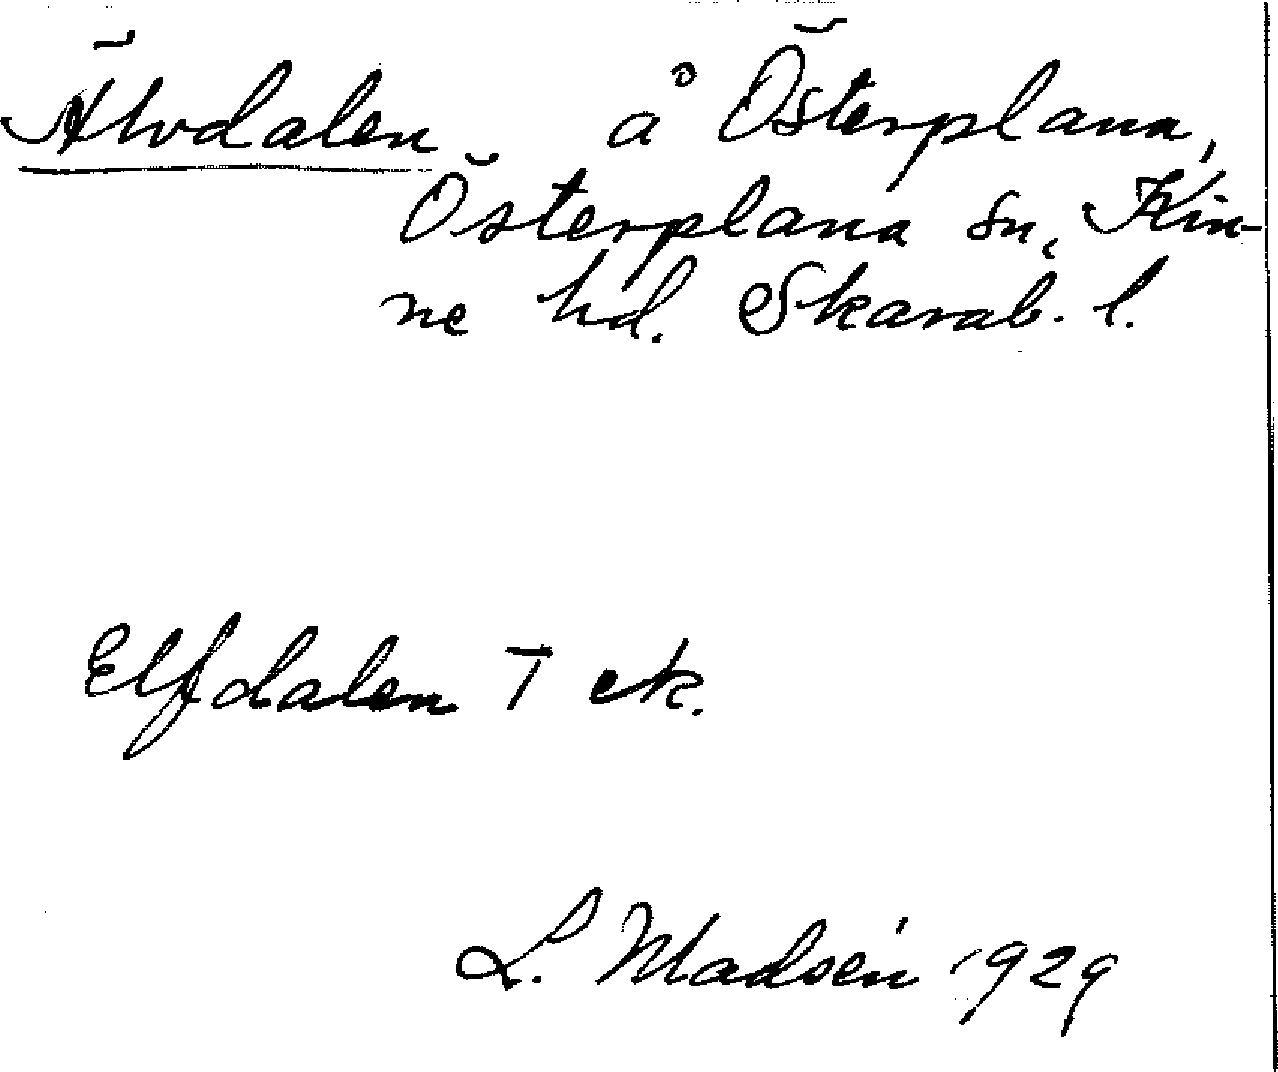 Älvdalen å Österplana,
Österplana sn, Kin-
ne hd. Skarab. l.
Elfdalen T ek.
L. Madsén 1929